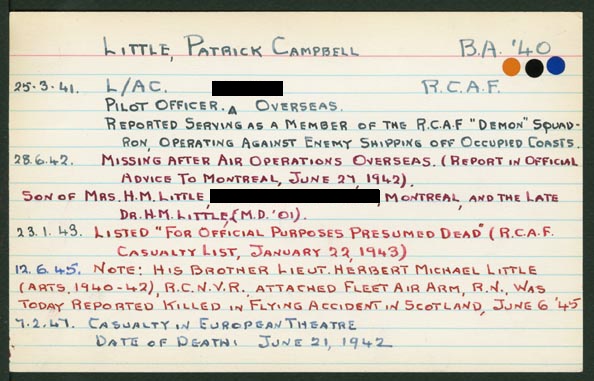 LITTLE, PATRICK CAMPBELL B.A. '40
25.3.41. L/AC. R.C.A.F.
PILOT OFFICER. OVERSEAS.
REPORTED SERVING AS A MEMBER OF THE R.C.A.F "DEMON" SQUAD-
RON, OPERATING AGAINST ENEMY SHIPPING OFF OCCUPIED COASTS.
28.6.42. MISSING AFTER AIR OPERATIONS OVERSEAS. (REPORT IN OFFICIAL
ADVICE TO MONTREAL, JUNE 27, 1942).
SON OF MRS. H.M. LITTLE, , MONTREAL, AND THE LATE
DR. H.M. LITTLE, (M.D. '01).
23.1.43. LISTED "FOR OFFICIAL PURPOSES PRESUMED DEAD" (R.C.A.F.
CASUALTY LIST, JANUARY 22, 1943)
12.6.45. NOTE: HIS BROTHER LIEUT. HERBERT MICHAEL LITTLE
(ARTS, 1940-42), R.C.N.V.R. ATTACHED FLEET AIR ARM, R.N., WAS
TODAY REPORTED KILLED IN FLYING ACCIDENT IN SCOTLAND, JUNE 6 '45
7.2.47. CASUALTY IN EUROPEAN THEATRE
DATE OF DEATH: JUNE 21, 1942